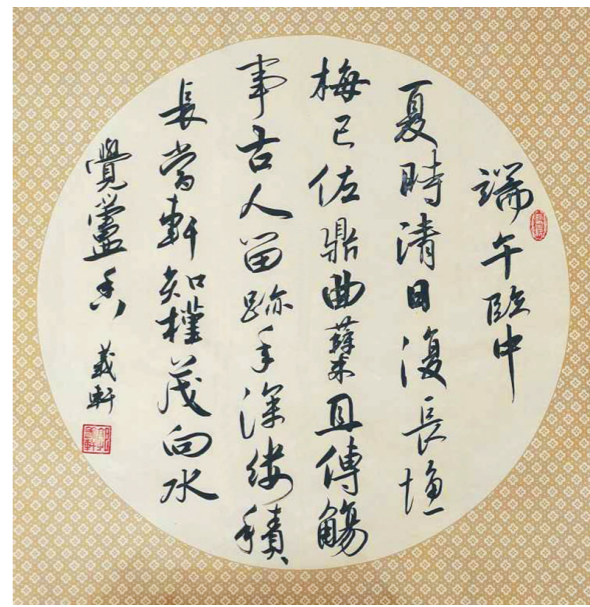 端午臨中
夏時清日復長塩
梅已佐鼎曲蘖且傳觴
事古人留跡年深縷積
長當軒知槿茂向水
覺蘆香
義軒